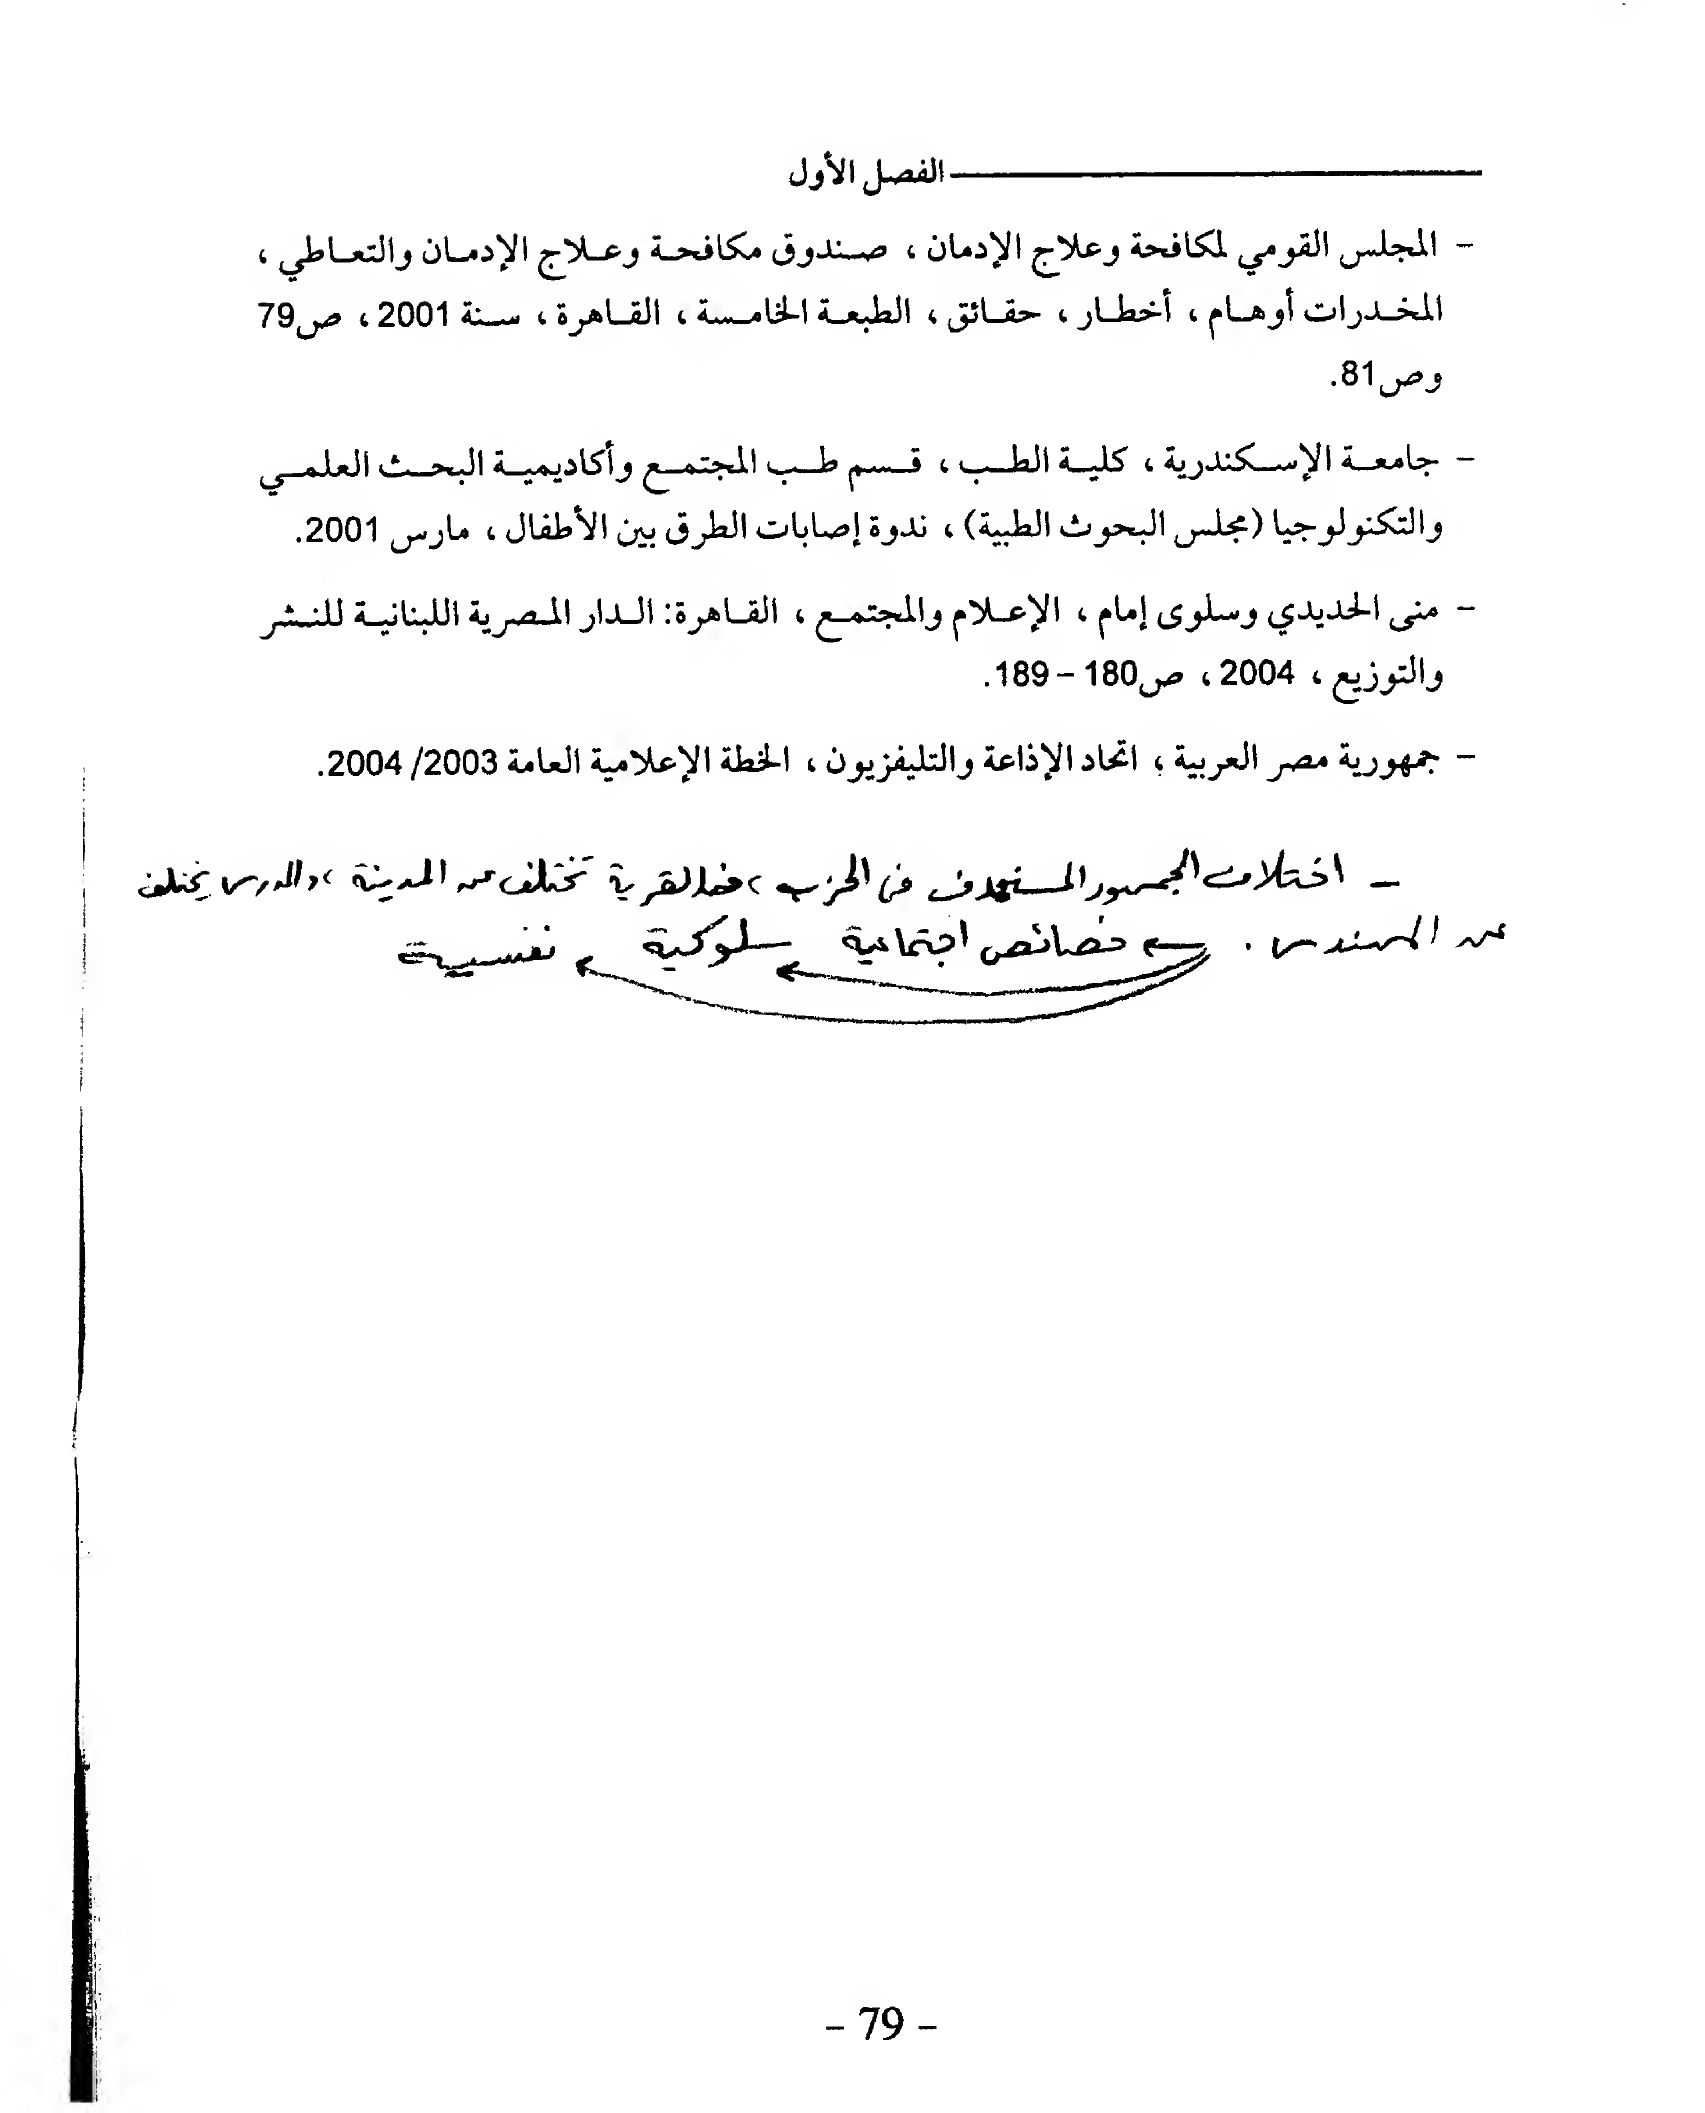 الفصل الأول
- المجلس القومي لمكافحة وعلاج الإدمان ، صندوق مكافحة وعلاج الإدمان والتعاطي ،
المخدرات أوهام ، أخطار ، حقائق ، الطبعة الخامسة ، القاهرة ، سنة 2001 ، ص79
وص81.
- جامعة الإسكندرية ، كلية الطب ، قسم طب المجتمع وأكاديمية البحث العلمي
والتكنولوجيا (مجلس البحوث الطبية) ، ندوة إصابات الطرق بين الأطفال ، مارس 2001.
- منى الحديدي وسلوى إمام ، الإعلام والمجتمع ، القاهرة: الدار المصرية اللبنانية للنشر
والتوزيع ، 2004 ، ص180 – 189.
- جمهورية مصر العربية ، اتحاد الإذاعة والتليفزيون ، الخطة الإعلامية العامة 2003/ 2004.
- اختلاف الجمهور المستهدف في الحزب ، القرية تختلف عن المدينة ، والمدرس يختلف
عن المهندس . ← خصائص اجتماعية سلوكية نفسية
- 79 -